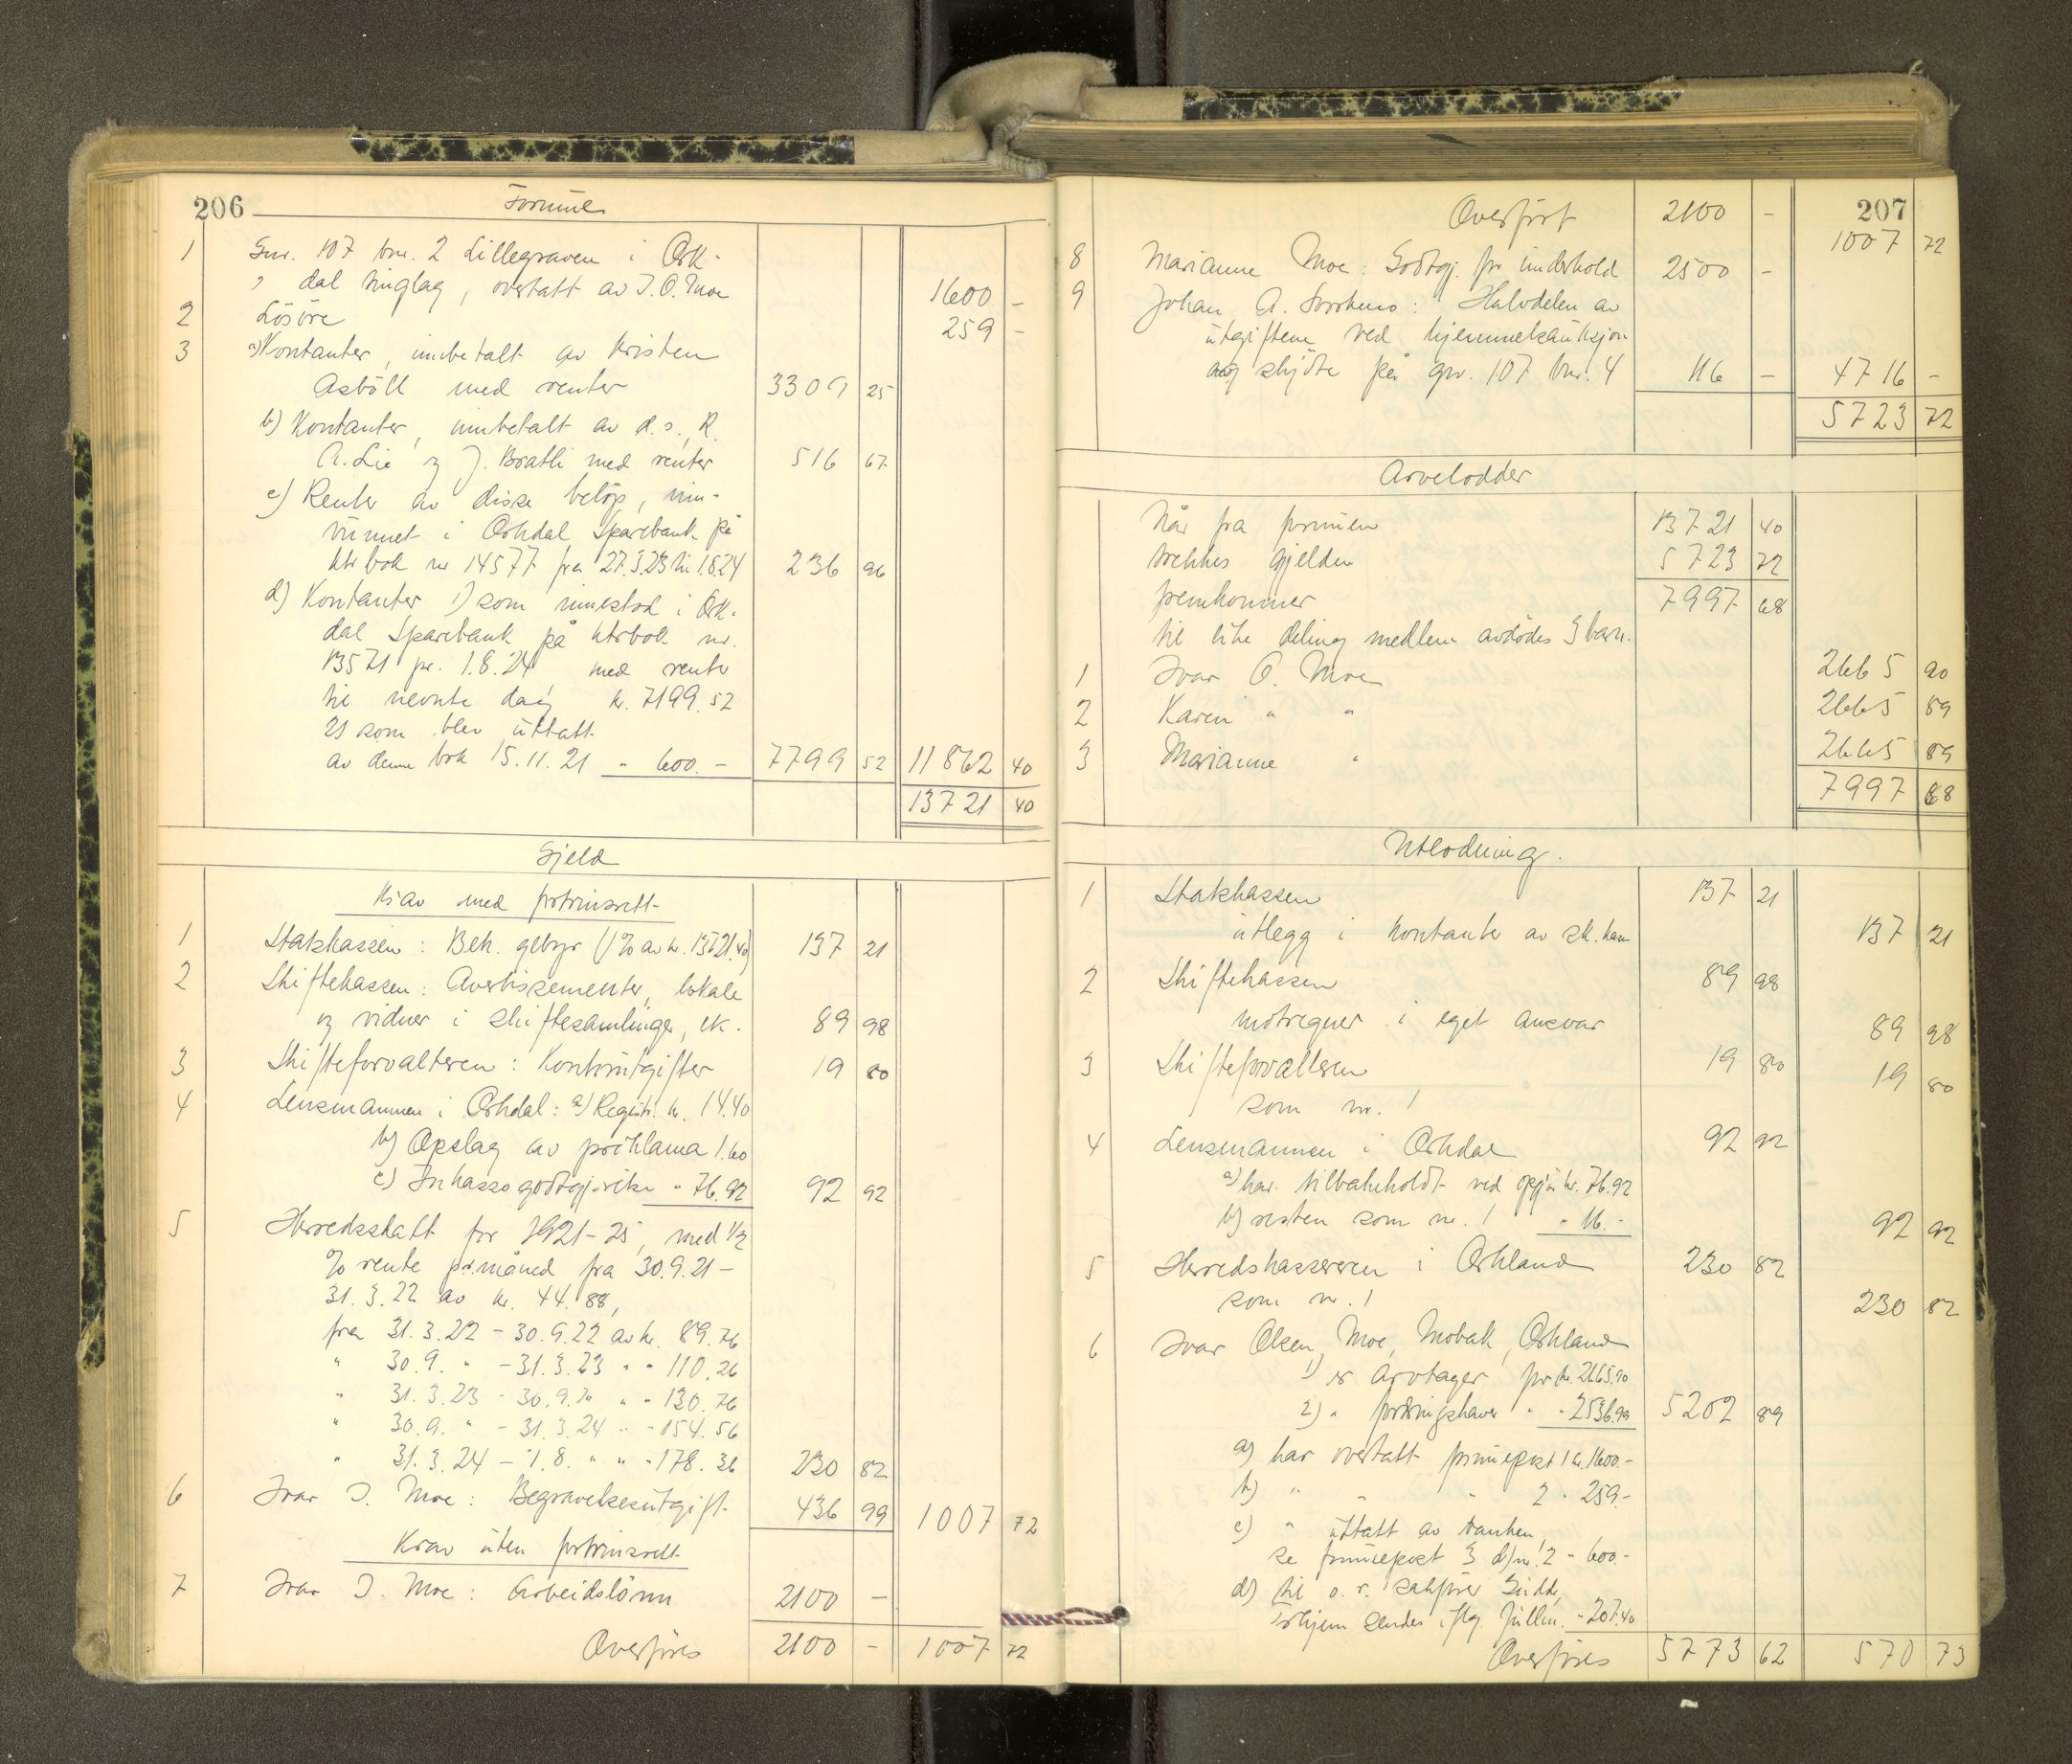 206
Formue
1 Gnr. 107 bnr. 2 Lillegraven i Ork-
dal tinglag, overtatt av I. O. Moe 1600 -
2 Lösöre 259 -
3 a) Kontanter, innbetalt av Kristen
Asböll med renter 3309 25
b) Kontanter, innbetalt av d. s., R.
A. Lie og J. Bratli med renter 516 67
c) Renter av disse belöp, inn-
vunnet i Orkdal Sparebank på
ktrbok nr 14577 fra 27.3.23 til 1.8.24 236 96
d) Kontanter 1) som innestod i Ork-
dal Sparebank på ktrbok nr.
13571 pr. 1.8.24, med rente
til nevnte dag kr. 7199.52
2) som blev uttatt
av denne bok 15.11.21 " 600.- 7799 52 11862 40
13721 40
Gjeld
Krav med fortrinsrett
1 Statskassen: Beh. gebyr (1% av kr. 13721.40) 137 21
2 Skiftekassen: Avertissementer, lokale
og vidner i skiftesamlinger, etc. 89 98
3 Skifteforvalteren: Kontorutgifter 19 80
4 Lensmannen i Orkdal: a) Registr. kr. 14.40
b) Opslag av proklama 1.60
c) Inkassogodtgjörelse " 76.92 92 92
5 Herredsskatt for 1921-25, med 1/2
% rente pr. måned fra 30.9.21 -
31.3.22 av kr. 44.88,
fra 31.3.22 - 30.9.22 av kr. 89.76
" 30.9. " - 31.3.23 " " 110.26
" 31.3.23 - 30.9. " " " 130.76
" 30.9. " - 31.3.24 " " 154.56
" 31.3.24 - 1.8. " " " 178.36 230 82
6 Ivar I. Moe: Begravelsesutgift. 436 99 1007 72
Krav uten fortrinsrett
7 Ivar I. Moe: Arbeidslönn 2100 -
Overföres 2100 - 1007 72
207
Overfört 2100 - 1007 72
8 Marianne Moe: Godtgj. for underhold 2500 -
9 Johan A. : Halvdelen av
utgiftene ved hjemmelsauksjon
og skjöte på gnr. 107 bnr. 4 116 - 4716 -
5723 72
Arvelodder
Når fra formuen 13721 40
trekkes gjelden 5723 72
fremkommer 7997 68
til like deling mellem avdödes 3 barn.
1 Ivar O. Moe 2665 90
2 Karen " " 2665 89
3 Marianne " 2665 89
7997 68
Utlodning.
1 Statskassen 137 21
utlegg i kontanter av sk. kassen 137 21
2 Skiftekassen 89 98
motregner i eget ansvar 89 98
3 Skifteforvalteren 19 80
som nr. 1 19 80
4 Lensmannen i Orkdal 92 92
a) har tilbakeholdt ved opgjör kr. 76.92
b) resten som nr. 1 " 16.- 92 92
5 Herredskassereren i Orkland 230 82
som nr. 1 230 82
6 Ivar Olsen Moe, Mobak, Orkland
1) er arvtager for kr. 2665.90
2) " fordringshaver " " 2536.99 5202 89
a) har overtatt formuepost 1 kr. 1600.-
b) " " " 2 " 259.-
c) " uttatt av banken,
se formuepost 3 d) nr. 2 - 600.-
d) til o. r. sakförer
sendes iflg. fullm. - 207.40
Overföres 5773 62 570 73